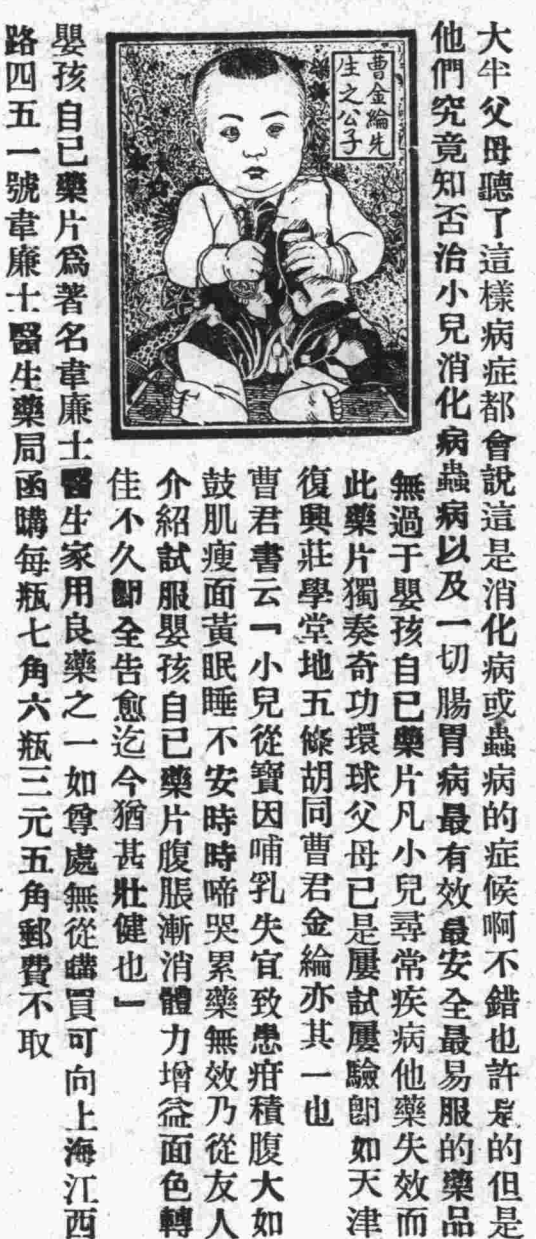 大半父母聽了這樣病症都會說這是消化病或蟲病的症候啊不錯也許是的但是
他們究竟知否治小兒消化病蟲病以及一切腸胃病最有效最安全最易服的藥品
無過于嬰孩自己藥片凡小兒尋常疾病他藥失效而
此藥片獨奏奇功環球父母已是屢試屢驗卽如天津
復興莊學堂地五條胡同曹君金綸亦其一也
曹君書云『小兒從寶因哺乳失宜致患疳積腹大如
鼓肌瘦面黃眠睡不安時時啼哭累藥無效乃從友人
介紹試服嬰孩自己藥片腹脹漸消體力增益面色轉
佳不久卽全告愈迄今猶甚壯健也』
曹金綸先
生之公子
嬰孩自己藥片爲著名韋廉士醫生家用良藥之一如尊處無從購買可向上海江西
路四五一號韋廉士醫生藥局函購每瓶七角六瓶三元五角郵費不取